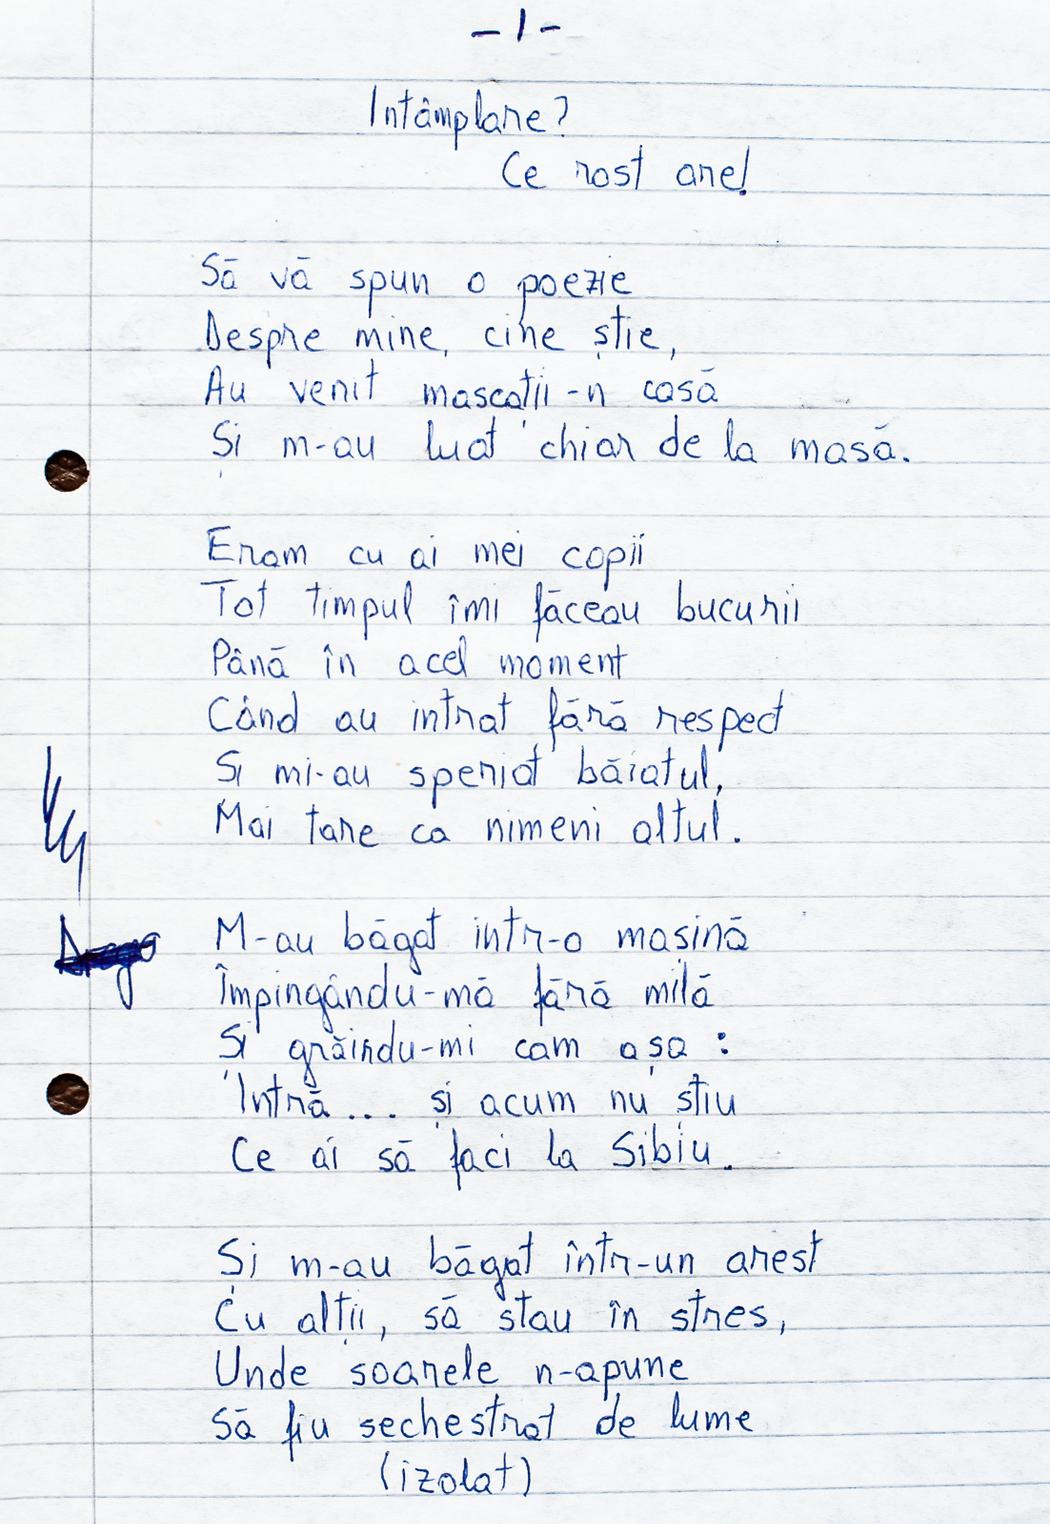 - 1 -
Intâmplare?
Ce rost are!
Să vă spun o poezie
Despre mine, cine știe,
Au venit mascații-n casă
Și m-au luat chiar de la masă.
Eram cu ai mei copii
Tot timpul îmi făceau bucurii
Până în acel moment
Când au intrat fără respect
Si mi-au speriat băiatul,
Mai tare ca nimeni altul.
M-au băgat intr-o mașină
Împingându-mă fără milă
Și grăindu-mi cam așa :
Intră... și acum nu știu
Ce ai să faci la Sibiu.
Și m-au băgat într-un arest
Cu alții, să stau în stres,
Unde soarele n-apune
Să fiu sechestrat de lume
(izolat)